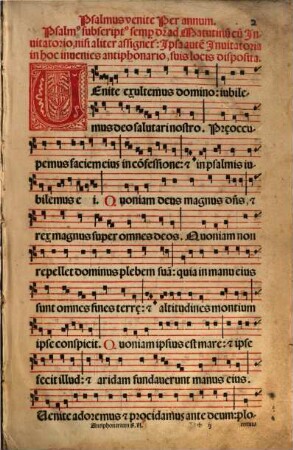 Psalmus venite Per annum.
2
Psalmꝰ subscriptꝰ semꝑ dr̄ ad Matutinū cū In
uitatorio, nisi aliter assignet̉: Ipsa autē Inuitatoria
in hoc inuenies antiphonario, suis locis disposita.
VEnite exultemus domino: iubile
mus deo salutari nostro. Preoccu
pemus faciem eius in cōfessione: ⁊ in psalmis iu
bilemus e i. Quoniam deus magnus dn̄s, ⁊
rex magnus super omnes deos. Quoniam non
repellet dominus plebem suā: quia in manu eius
sunt omnes fines terrę: ⁊ altitudines montium
ipse conspicit. Quoniam ipsius est mare: ⁊ ipse
fecit illud: ⁊ aridam fundauerunt manus eius.
Uenite adoremus ⁊ procidamus ante deum: plo